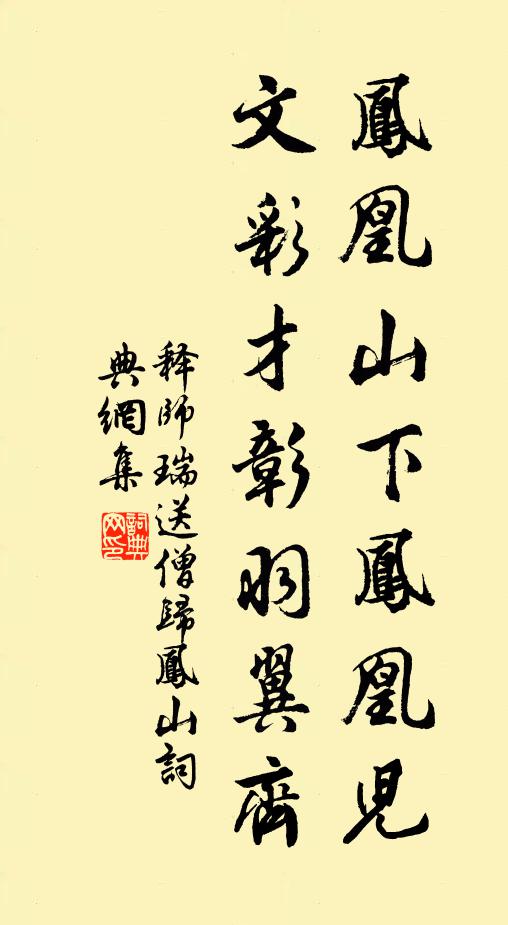 鳳凰山下鳳凰児
文彩才彰羽翼齊
释師瑞送僧歸鳳山詞
典網集
詞典
网印